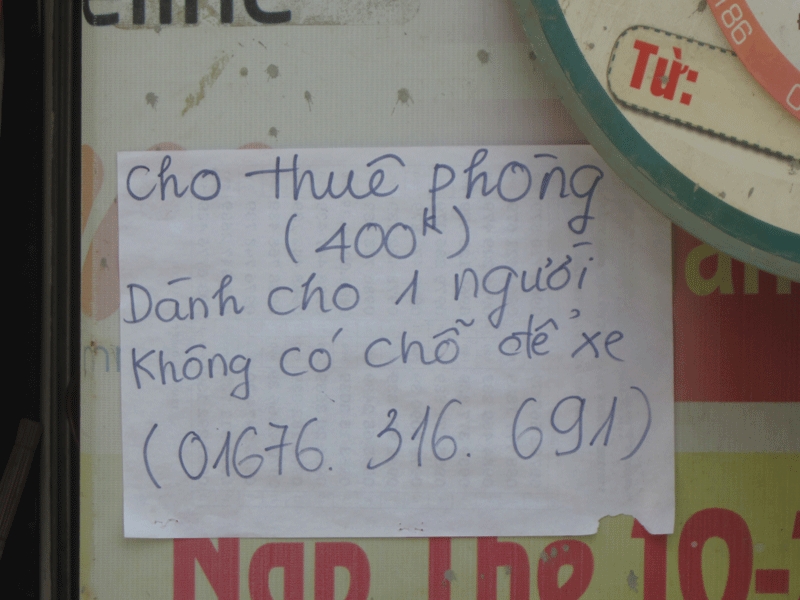 Từ:
186
cho thuê phòng
(400K)
Dánh cho 1 người
Không có chỗ để xe
(01676. 316. 691)
Nạp Thẻ 10-